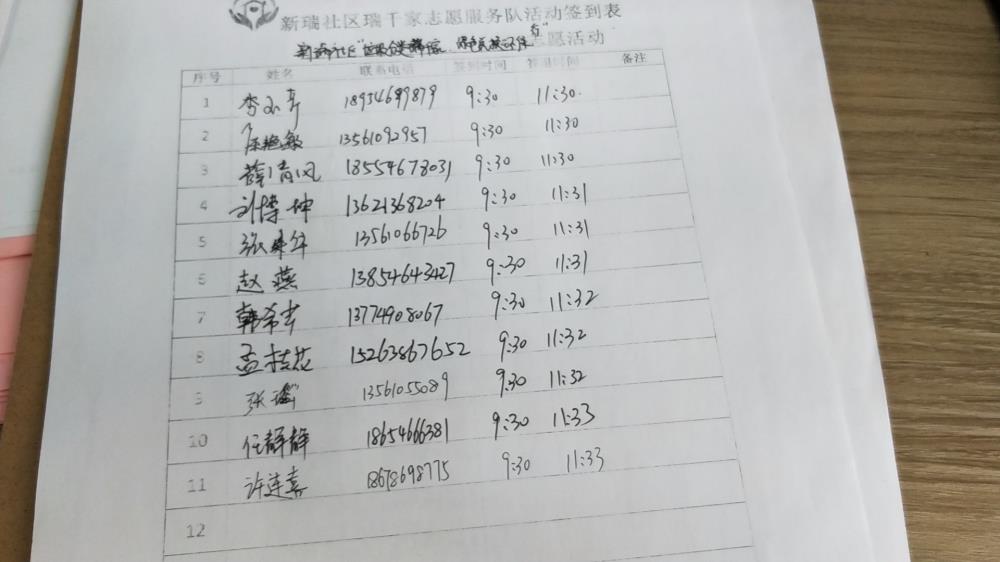 新瑞社区瑞千家志愿服务队活动签到表
新瑞社区"垃圾分类 绿色环保 志愿活动
序号 姓名 联系电话 签到时间 签退时间 备注
1 李 18954699879 9:30 11:30
2 陈艳敏 13561092957 9:30 11:30
3 薛清风 18554678031 9:30 11:30
4 刘博坤 13621368204 9:30 11:31
5 张 13561066726 9:30 11:31
6 赵燕 13854643427 9:30 11:31
7 韩希 13774908067 9:30 11:32
8 孟桂花 15263867652 9:30 11:32
9 张瑶 13561055089 9:30 11:32
10 任静静 18654666381 9:30 11:33
11 许连嘉 18678698775 9:30 11:33
12